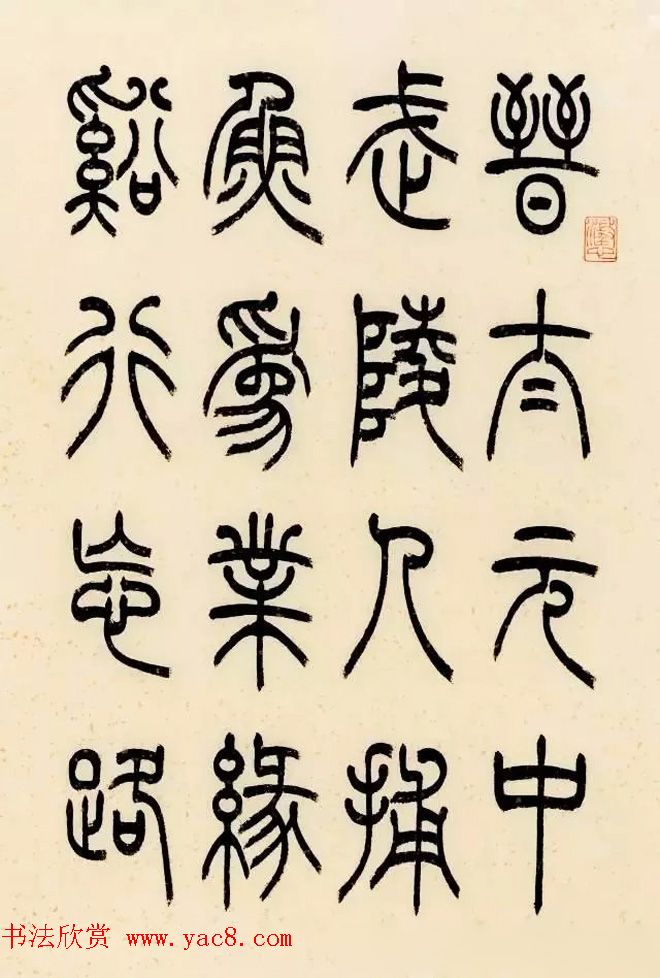 晉太元中
武陵人捕
魚爲業緣
谿行忘路
书法欣赏 www.yac8.com